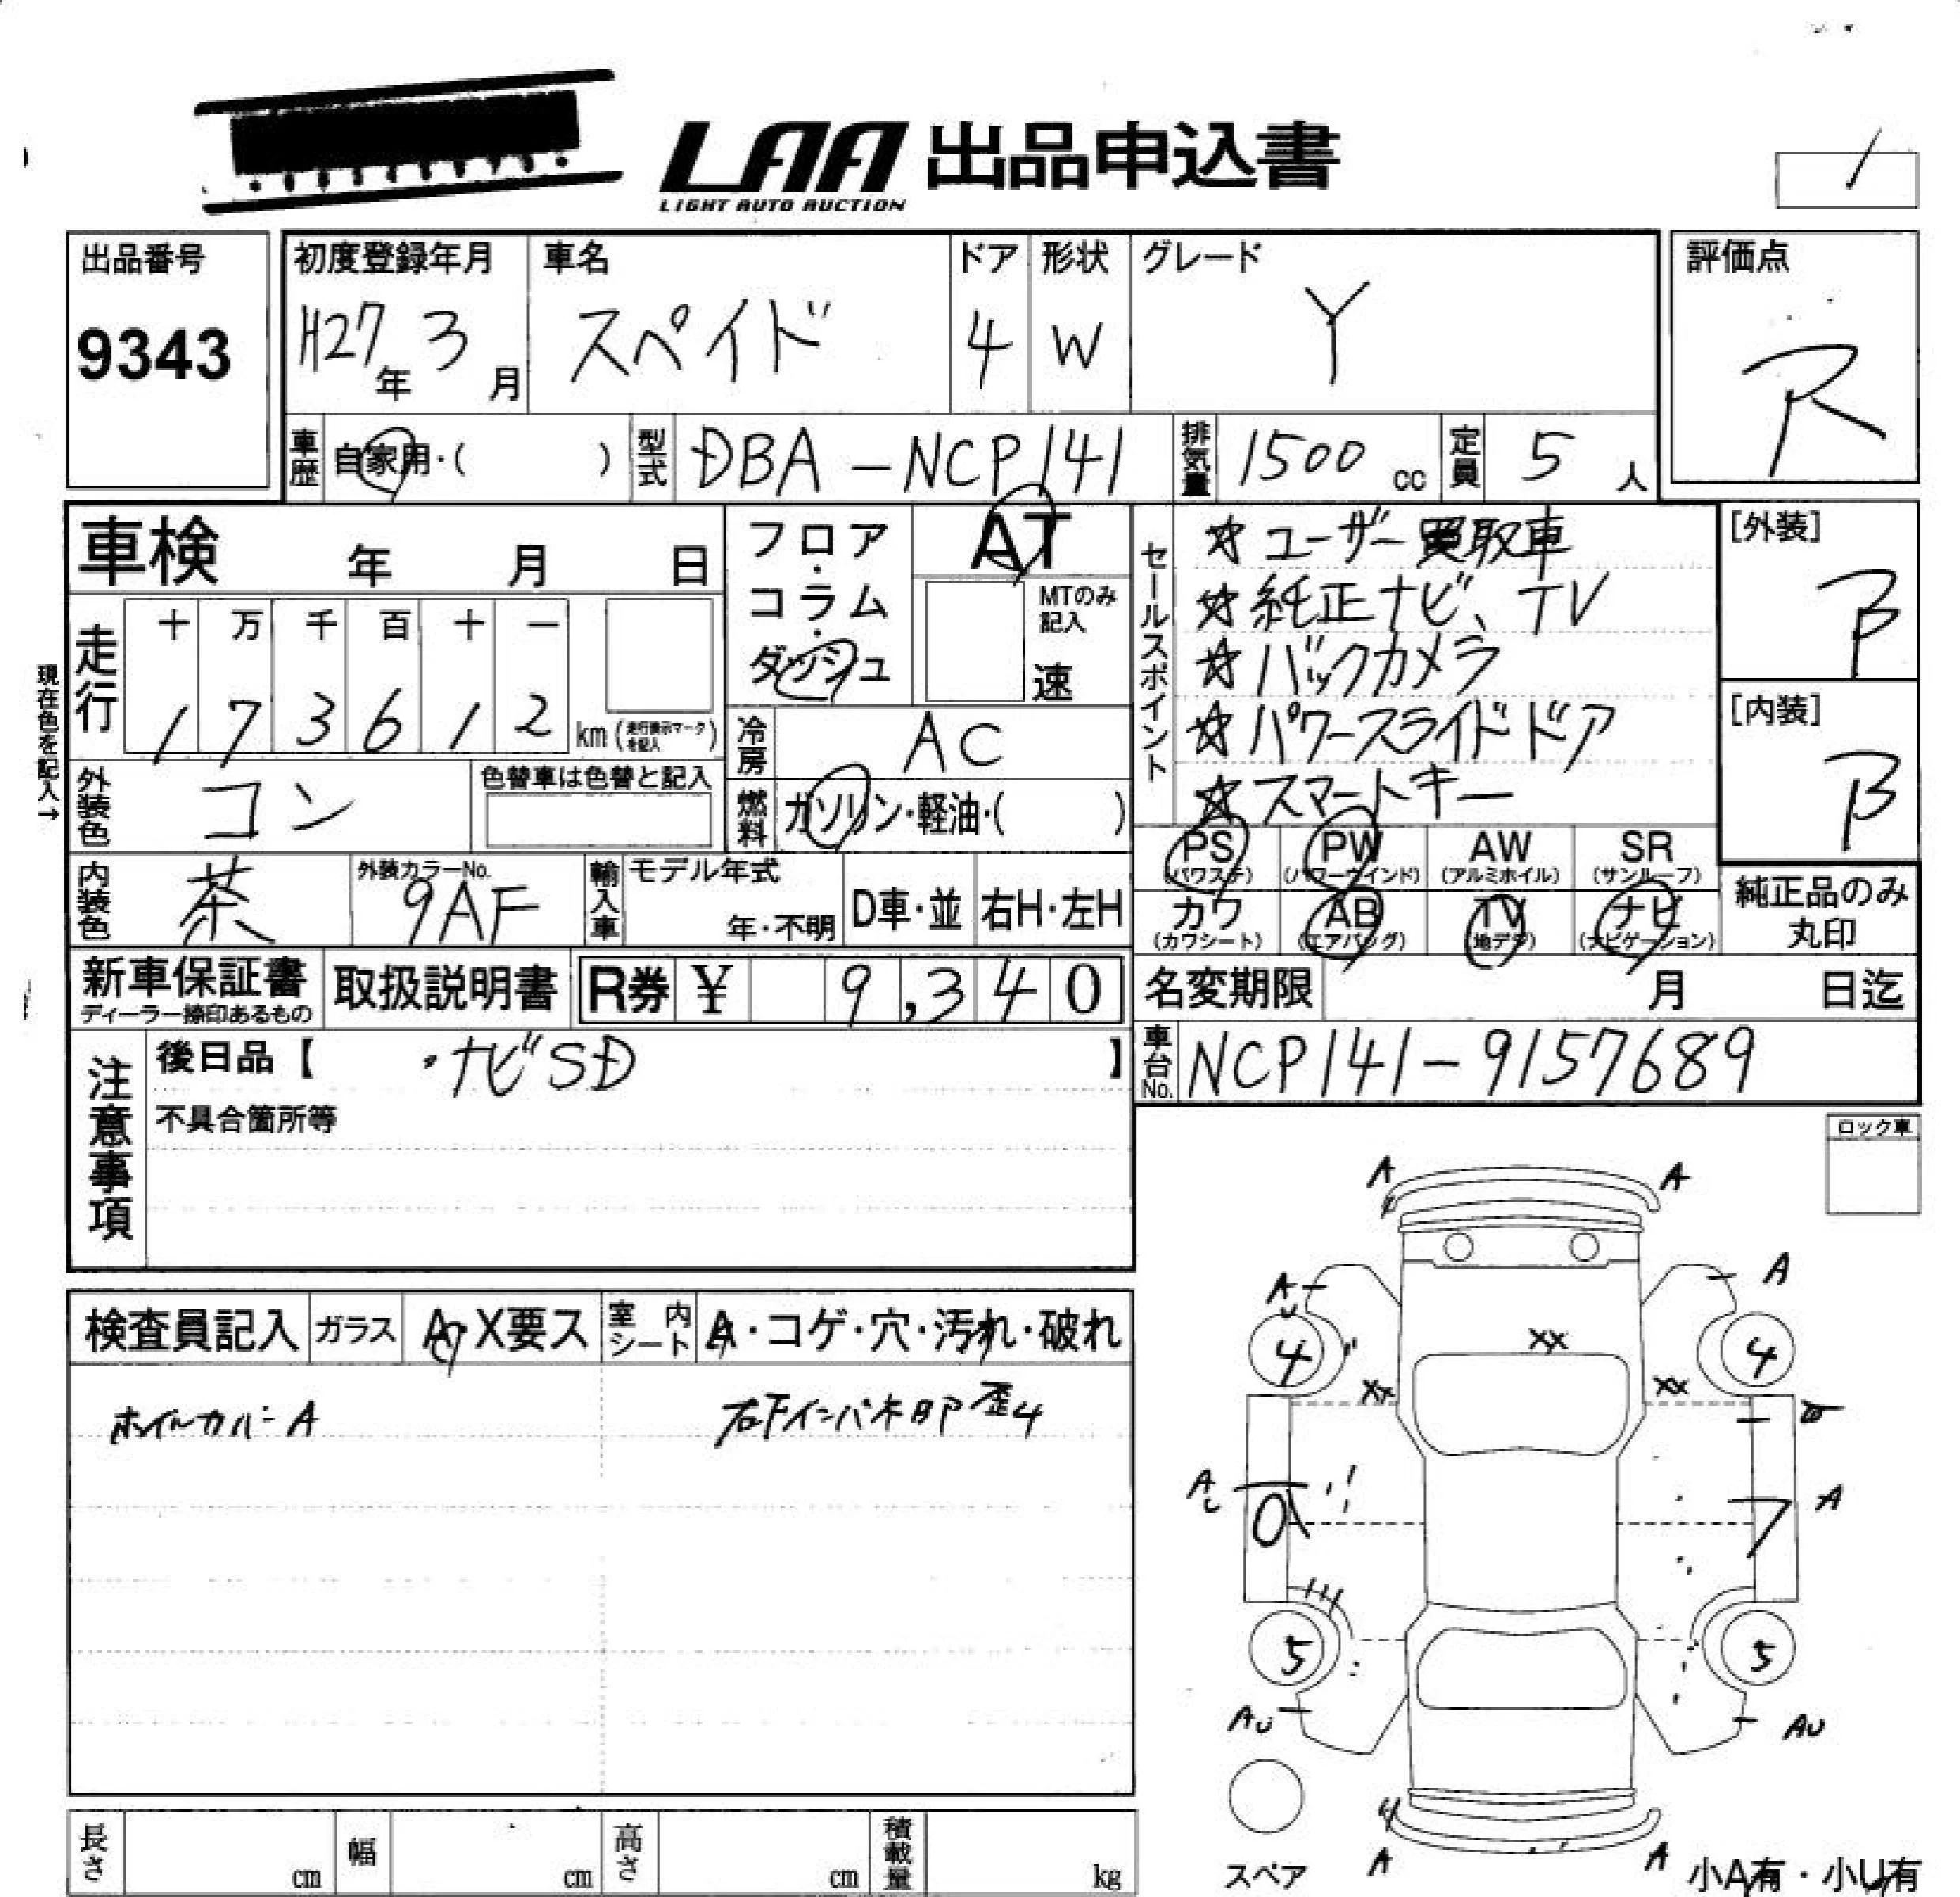 LAA 出品申込書
LIGHT AUTO AUCTION
出品番号
9343
初度登録年月
H27年 3月
車名
スペイド
ドア
4
形状
W
グレード
Y
評価点
R
車歴 自家用・( )
型式 DBA-NCP141
排気量 1500 cc
定員 5 人
車検 年 月 日
フロア・コラム・ダッシュ
AT
MTのみ記入
速
セールスポイント
☆ ユーザー買取車
☆ 純正ナビ、TV
☆ バックカメラ
☆ パワースライドドア
☆ スマートキー
[外装]
B
[内装]
B
現在色を記入→
走行 十 万 千 百 十 一
1 7 3 6 1 2 km (走行表示マークを記入)
冷房 AC
外装色 コン
色替車は色替と記入
燃料 ガソリン・軽油・( )
PS (パワステ) PW (パワーウインド) AW (アルミホイル) SR (サンルーフ)
カワ (カワシート) AB (エアバッグ) TV (地デジ) ナビ (ナビゲーション)
純正品のみ丸印
内装色 茶
外装カラーNo.
9AF
輸入車 モデル年式
年・不明
D車・並 右H・左H
新車保証書
ディーラー捺印あるもの
取扱説明書
R券 ¥ 9,340
名変期限 月 日迄
注意事項
後日品【 ・ナビSD 】
不具合箇所等
車台No. NCP141-9157689
ロック車
検査員記入 ガラス A・X要ス 室内シート A・コゲ・穴・汚れ・破れ
ホイルカバーA
A A
A U A
4 4
XX
XX XX
A
A
7
5 5
AU AU
A A
スペア
小A有・小U有
長さ cm 幅 cm 高さ cm 積載量 kg